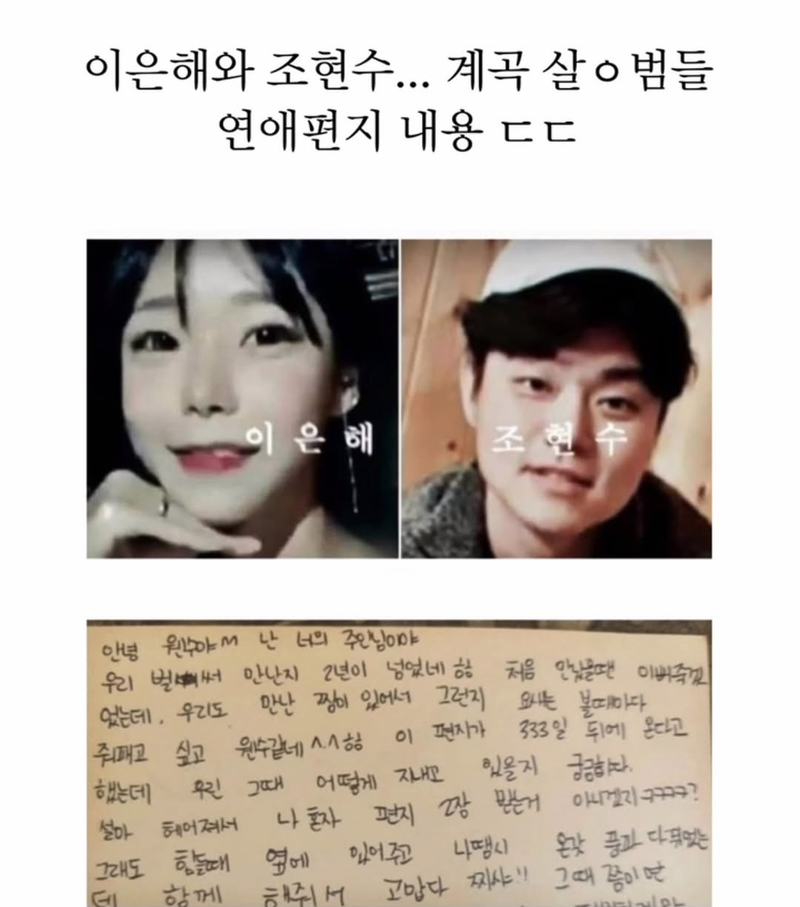 이은해와 조현수... 계곡 살ㅇ범들
연애편지 내용 ㄷㄷ
이은해
조현수
안녕 원수야^^ 난 너의 주인님이야
우리 벌써 만난지 2년이 넘었네 힝 처음 만났을땐 이뻐죽겠
었는데, 우리도 만난 짬이 있어서 그런지 요새는 볼때마다
줘패고 싶고 원수같네^^힝 이 편지가 333일 뒤에 온다고
했는데 우린 그때 어떻게 지내고 있을지 궁금하다.
설마 헤어져서 나 혼자 편지 2장 받는거 아니겠지ㅋㅋㅋㅋ?
그래도 힘들때 옆에 있어주고 나땜시 온갖 풍파 다 겪었는
데 함께 해줘서 고맙다 찌샤!! 그때 쯤이면